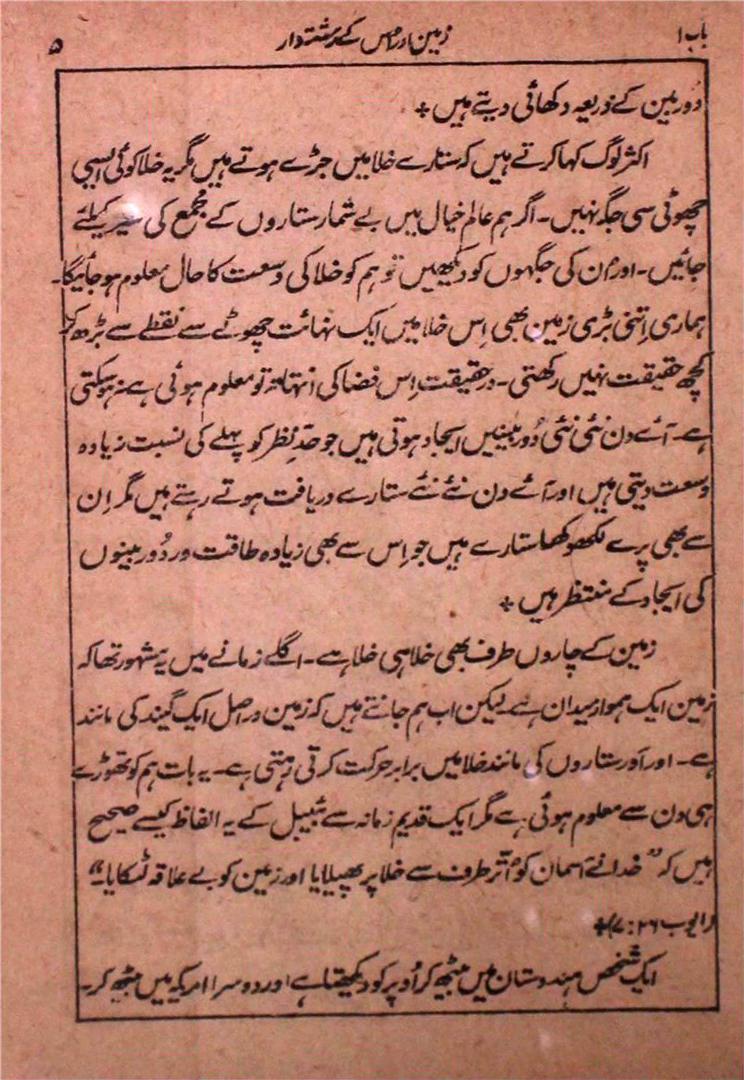 باب ۱ زمین اور اس کے رشتہ دار ۵
دُوربین کے ذریعہ دکھائی دیتے ہیں +
اکثر لوگ کہا کرتے ہیں کہ ستارے خلا میں جڑے ہوتے ہیں مگر یہ خلا کوئی ایسی
چھوٹی سی جگہ نہیں۔ اگر ہم عالمِ خیال میں بے شمار ستاروں کے مجمع کی سیر کیلئے
جائیں۔ اور اُن کی جگہوں کو دیکھیں تو ہم کو خلا کی وسعت کا حال معلوم ہو جائیگا۔
ہماری اِتنی بڑی زمین بھی اِس خلا میں ایک نہائت چھوٹے سے نقطے سے بڑھ کر
کچھ حقیقت نہیں رکھتی۔ درحقیقت اِس فضا کی انتہا نہ تو معلوم ہوئی ہے نہ ہو سکتی
ہے۔ آئے دن نئی نئی دُوربینیں ایجاد ہوتی ہیں جو حدِ نظر کو پہلے کی نسبت زیادہ
وسعت دیتی ہیں اور آئے دن نئے نئے ستارے دریافت ہوتے رہتے ہیں مگر اِن
سے بھی پرے لکھوکھا ستارے ہیں جو اِس سے بھی زیادہ طاقت ور دُوربینوں
کی ایجاد کے منتظر ہیں +
زمین کے چاروں طرف بھی خلا ہی خلا ہے۔ اگلے زمانے میں یہ مشہور تھا کہ
زمین ایک ہموار میدان ہے لیکن اب ہم جانتے ہیں کہ زمین دراصل ایک گیند کی مانند
ہے۔ اور اَور ستاروں کی مانند خلا میں برابر حرکت کرتی رہتی ہے۔ یہ بات ہم کو تھوڑے
ہی دن سے معلوم ہوئی ہے مگر ایک قدیم زمانہ سے بیبل کے یہ الفاظ کیسے صحیح
ہیں کہ ”خدا نے آسمان کو اُتر طرف سے خلا پر پھیلایا اور زمین کو بے علاقہ لٹکایا“
(ایوب ۲۶: ۷)+
ایک شخص ہندوستان میں بیٹھ کر اُوپر کو دیکھتا ہے اور دوسرا امریکہ میں بیٹھ کر۔